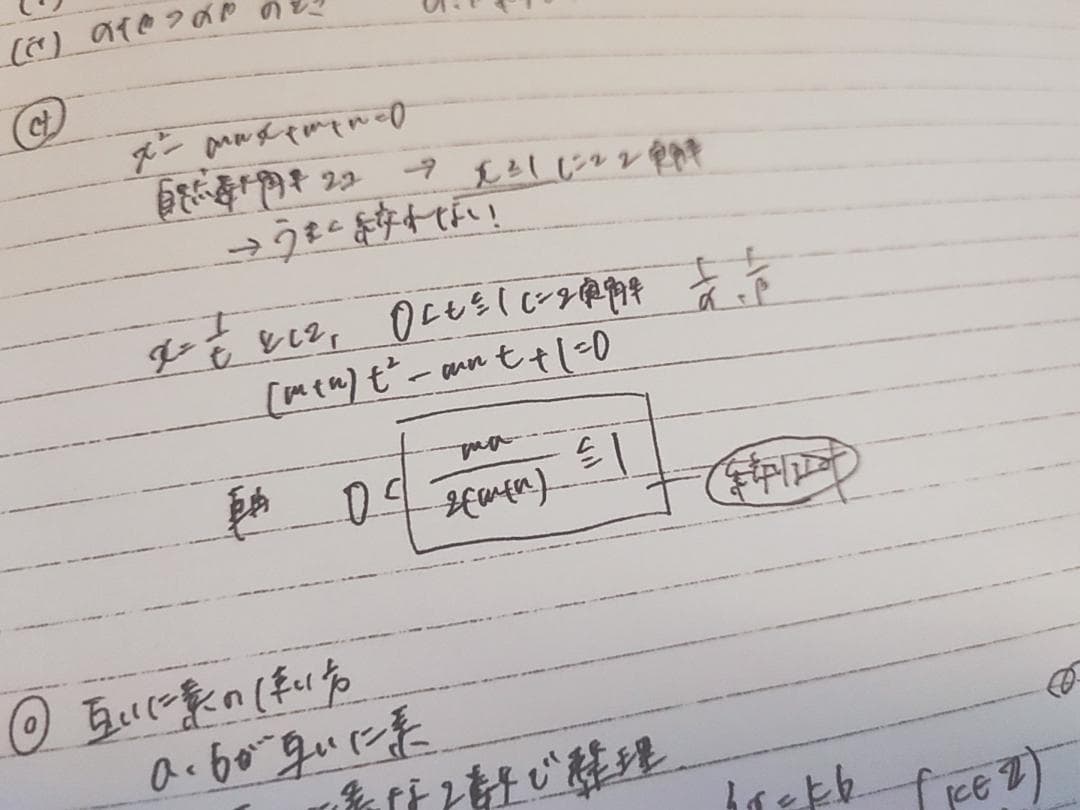 (ii) α+β>αβ のとき
x²-mnx+m+n=0
自然数解2つ → x≧1に2実解
→うまく絞れない!
x=1/t として, 0<t≦1に2実解 1/α, 1/β
(m+n)t²-mnt+1=0
軸 0< mn/2(m+n) ≦1
互いに素の使い方
a, bが互いに素
な2数で整理
=kb (k∈ℤ)